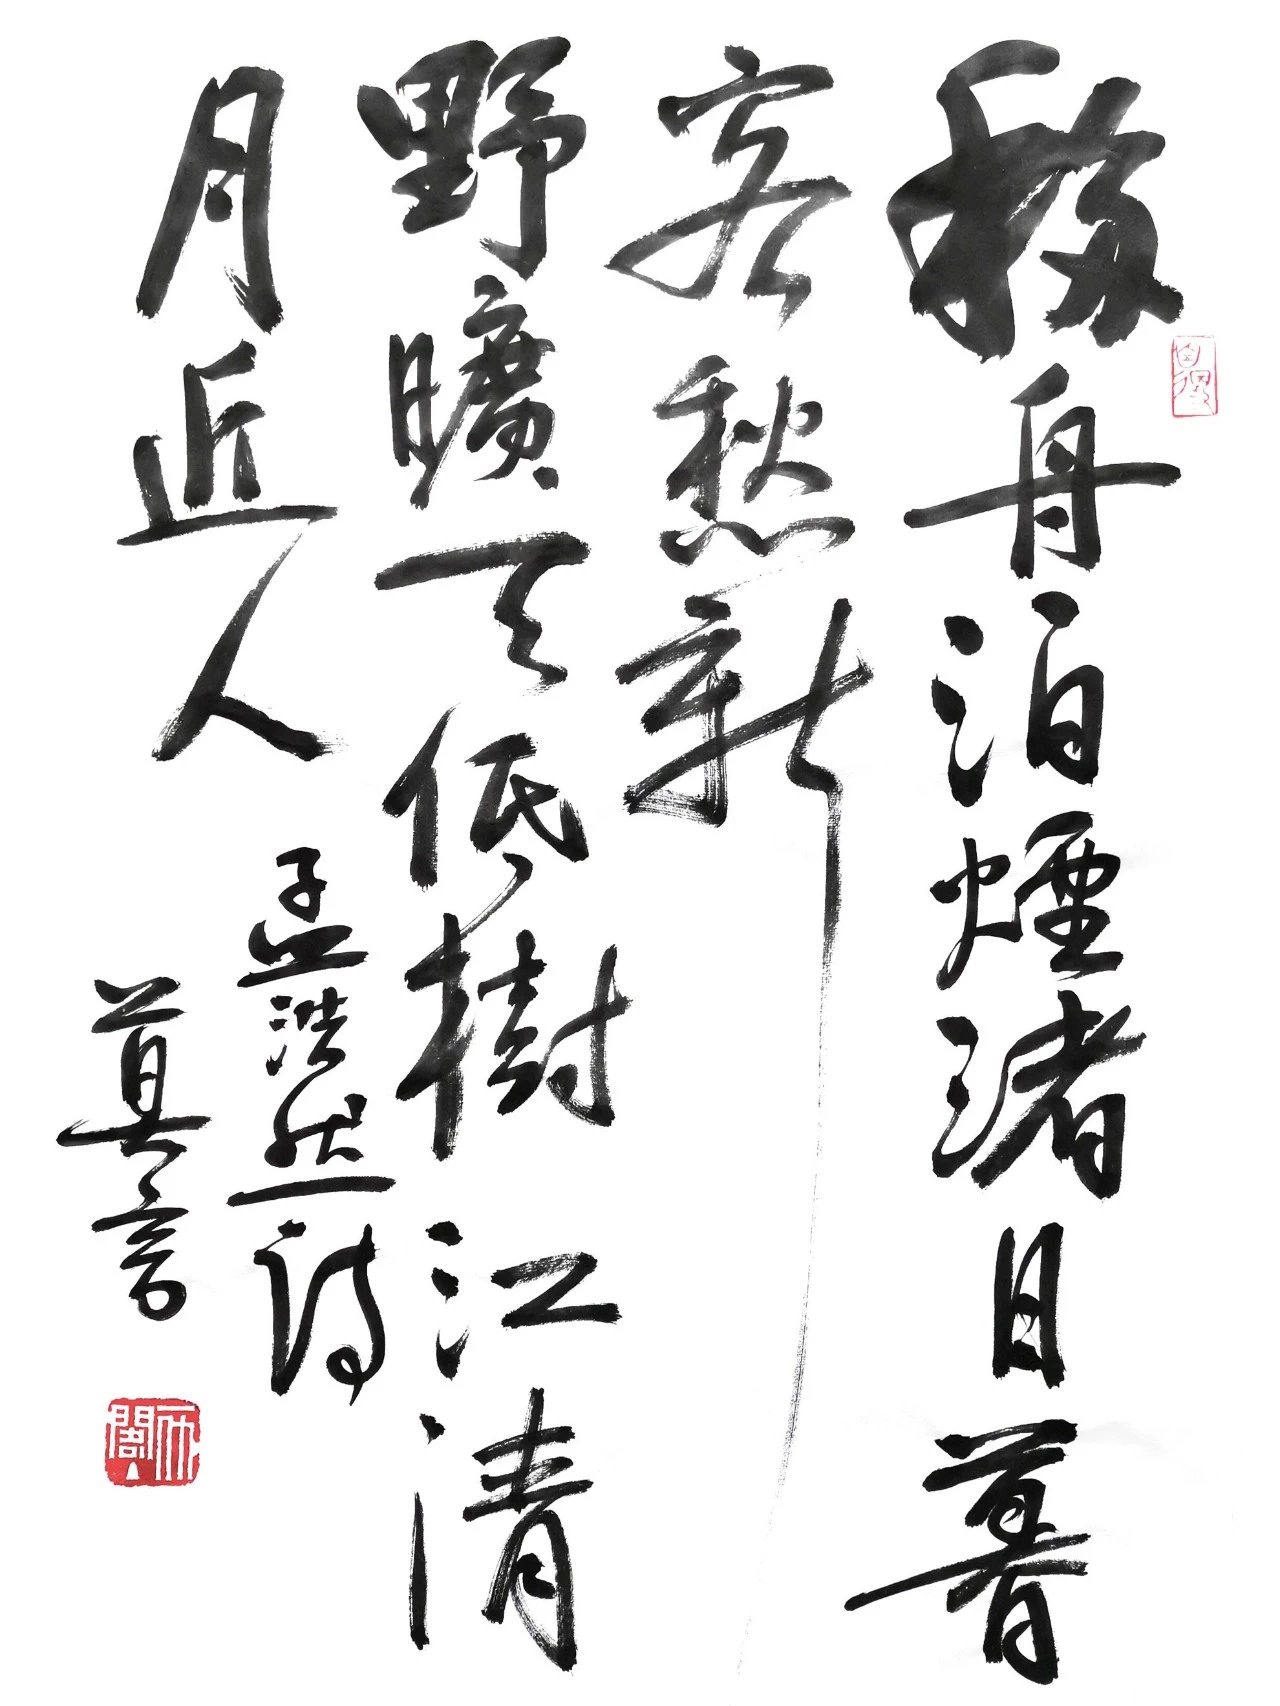 移舟泊煙渚日暮
客愁新
野曠天低樹江清
月近人
孟浩然詩
莫言